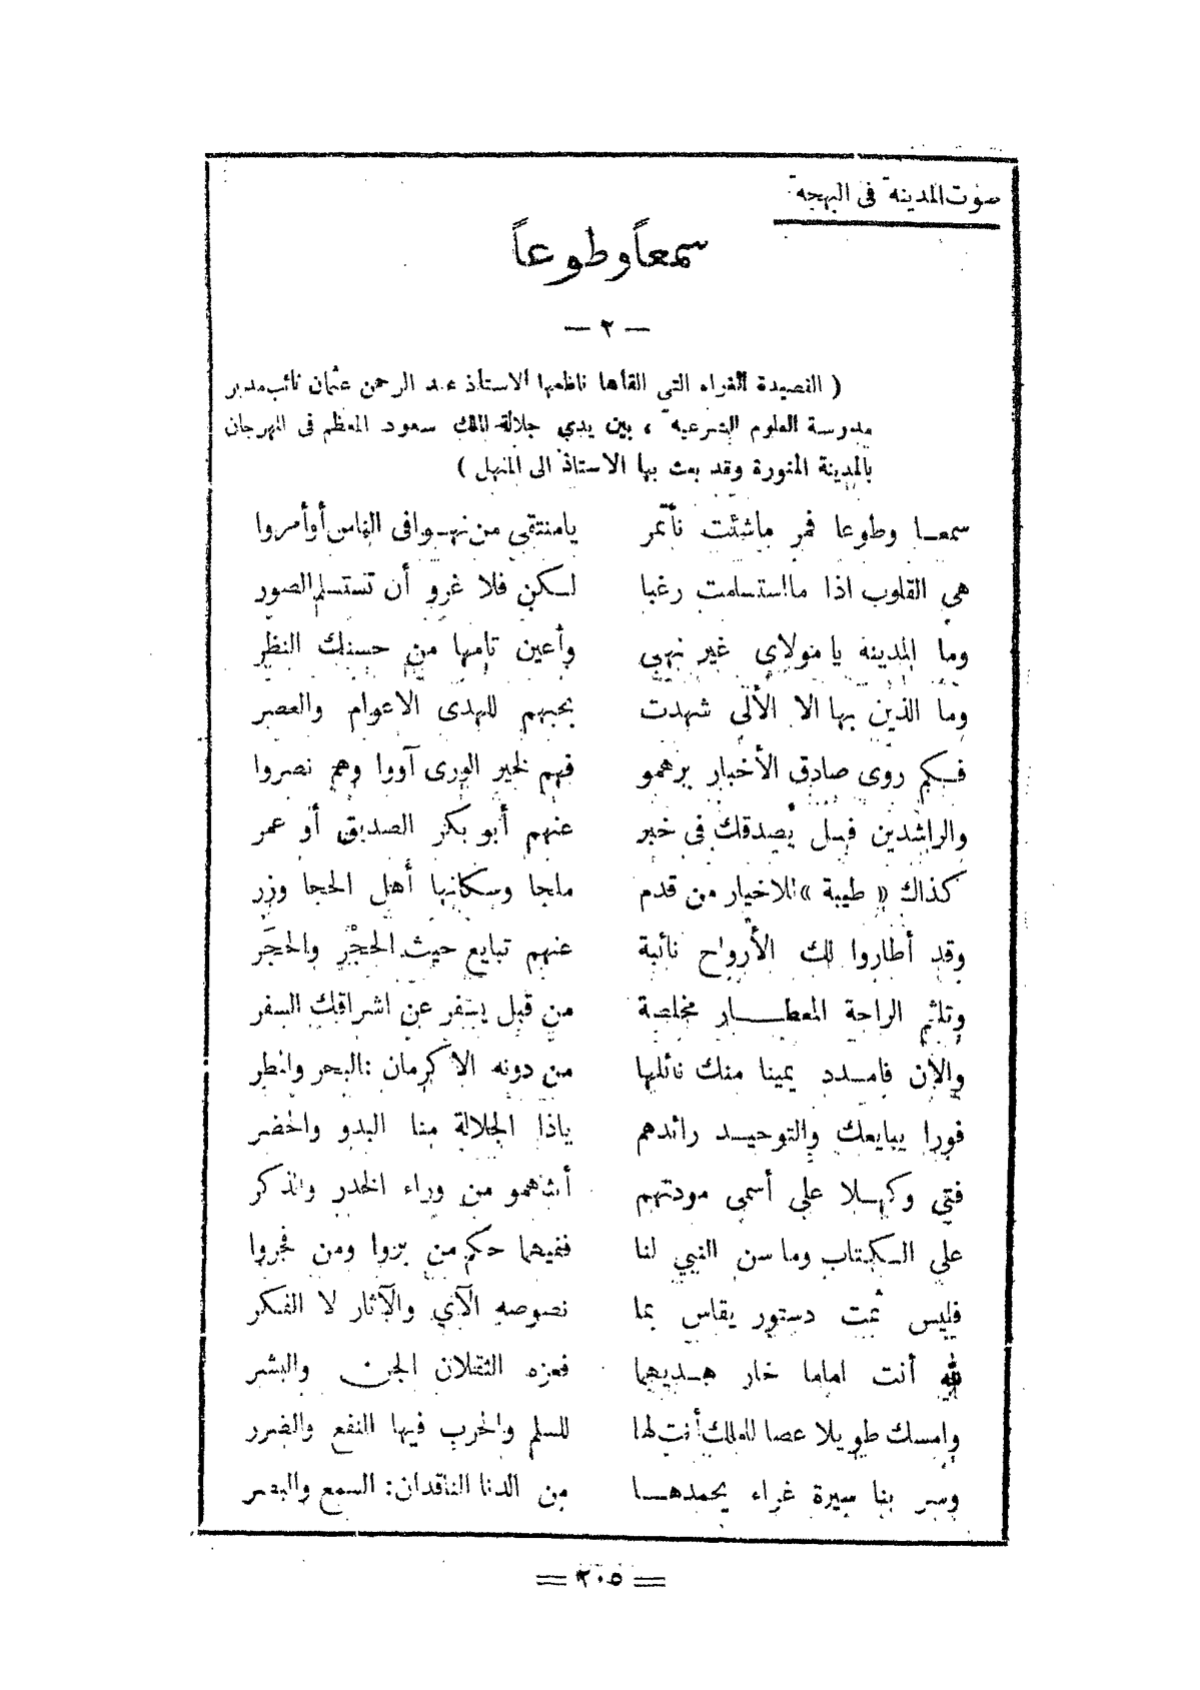 صوت المدينة في البهجة
سمعاً وطوعاً
— ٢ —
( القصيدة الغراء التي القاها ناظمها الاستاذ عبد الرحمن عثمان نائب مدير
مدرسة العلوم الشرعية ، بين يدي جلالة الملك سعود المعظم في المهرجان
بالمدينة المنورة وقد بعث بها الاستاذ الى المنهل )
سمعـا وطوعا فمر ماشئت نأتمر يامنتقى من نهـوا في الناس أو أمروا
هي القلوب اذا ما استسلمت رغبا لكن فلا غرو أن تستسلم الصور
وما المدينة يا مولاي غير نهى وأعين تامها من حسنك النظر
وما الذين بها الا الألى شهدت بحبهم للهدى الاعوام والعصر
فكم روى صادق الأخبار برهمو فهم لخير الورى آووا وهم نصروا
والراشدين فسل يصدقك في خبر عنهم أبو بكر الصديق أو عمر
كذاك « طيبة » للاخيار من قدم ملجا وسكانها أهل الحجا وزر
وقد أطاروا لك الأرواح نائبة عنهم تبايع حيث الحجْر والحجَر
وتلثم الراحة المعطـار مخلصة من قبل يسفر عن اشراقك السفر
والآن فامـدد يمينا منك نائلها من دونه الاكرمان : البحر والمطر
فورا يبايعك والتوحيـد رائدهم ياذا الجلالة منا البدو والحضر
فتى وكهـلا على أسمى مودتهم أنثاهمو من وراء الخدر والذكر
على الـكتاب وما سن النبي لنا ففيهما حكم من بروا ومن فجروا
فليس ثمت دستور يقاس بما نصوصه الآي والآثار لا الفكر
لله أنت اماما خار هـديهما فعزه الثقلان الجن والبشر
وامسك طويلا عصا للملك أنت لها للسلم والحرب فيها النفع والضرر
وسر بنا سيرة غراء يحمدهـا من الدنا الناقدان : السمع والبصر
= ٢٠٥ =